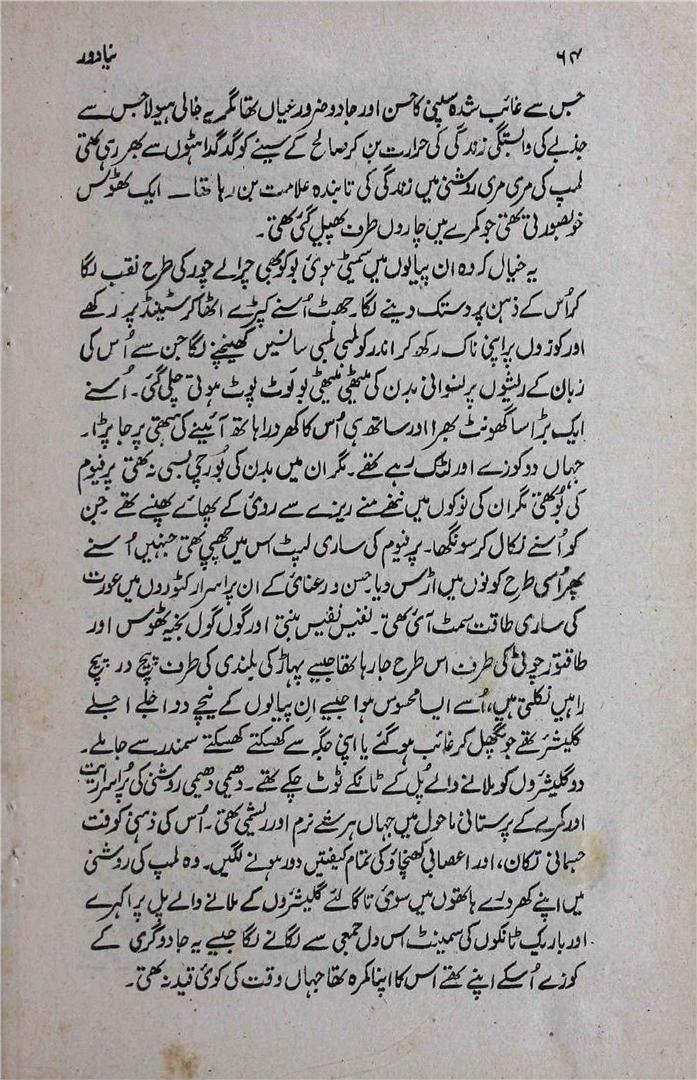 ۶۴ نیا دور
جس سے غائب شدہ سپنی کا حسن اور جادو ضرور عیاں تھا مگر یہ خالی ہیولا جس سے
جذبے کی وابستگی زندگی کی حرارت بن کر صالح کے سینے کو گدگداہٹوں سے بھر رہی تھی
لمپ کی مری مری روشنی میں زندگی کی تابندہ علامت بن رہا تھا ــ ایک ٹھوس
خوبصورتی تھی جو کمرے میں چاروں طرف پھیل گئی تھی۔
یہ خیال کہ وہ ان پیالوں میں سمیٹی ہوئی بو کو بھی چرالے چور کی طرح نقب لگا
کر اُس کے ذہن پر دستک دینے لگا۔ جھٹ اُسنے کپڑے اٹھا کر سٹینڈ پر رکھے
اور کوزوں پر اپنی ناک رکھ کر اندر کو لمبی لمبی سانسیں کھینچنے لگا جن سے اُس کی
زبان کے ریشوں پر نسوانی بدن کی میٹھی میٹھی بو لوٹ پوٹ ہوتی چلی گئی۔ اُسنے
ایک بڑا سا گھونٹ بھرا اور ساتھ ہی اُس کا کھردرا ہاتھ آئینے کی پر جا پڑا۔
جہاں دو کوزے اور لٹک رہے تھے۔ مگر ان میں بدن کی بُو رچی بسی نہ تھی پرفیوم
کی بُو تھی مگر ان کی نوکوں میں ننھے منے ریزے سے روئی کے پھائے پھنسے تھے جن
کو اُسنے نکال کر سونگھا۔ پرفیوم کی ساری لپٹ اس میں چھپی تھی جنہیں اُسنے
پھر اُسی طرح کونوں میں اڑس دیا حسن و رعنائی کے ان پراسرار کٹوروں میں عورت
کی ساری طاقت سمٹ آئی تھی۔ نفیس نفیس بنتی اور گول گول بخیہ ٹھوس اور
طاقتور چوٹی کی طرف اس طرح جا رہا تھا جیسے پہاڑ کی بلندی کی طرف پیچ در پیچ
راہیں نکلتی ہیں، اُسے ایسا محسوس ہوا جیسے ان پیالوں کے نیچے دو اجلے اجلے
گلیشئر تھے جو پگھل کر غائب ہو گئے یا اپنی جگہ سے کھسکتے کھسکتے سمندر سے جا ملے۔
دو گلیشئروں کو ملانے والے پُل کے ٹانکے ٹوٹ چکے تھے۔ دھیمی دھیمی روشنی کی پُراسراریت
اور کمرے کے پرستانی ماحول میں جہاں ہر شے نرم اور ریشمی تھی۔ اُس کی ذہنی کوفت
جسمانی تکان، اور اعصابی کھنچاؤ کی تمام کیفیتیں دور ہونے لگیں۔ وہ لمپ کی روشنی
میں اپنے کھردرے ہاتھوں میں سوئی تاگا لئے گلیشئروں کے ملانے والے پل پر اکہرے
اور باریک ٹانکوں کی سمینٹ اس دل جمعی سے لگانے لگا جیسے یہ جادوگری کے
کوزے اُسکے اپنے تھے اس کا اپنا کمرہ تھا جہاں وقت کی کوئی قید نہ تھی۔